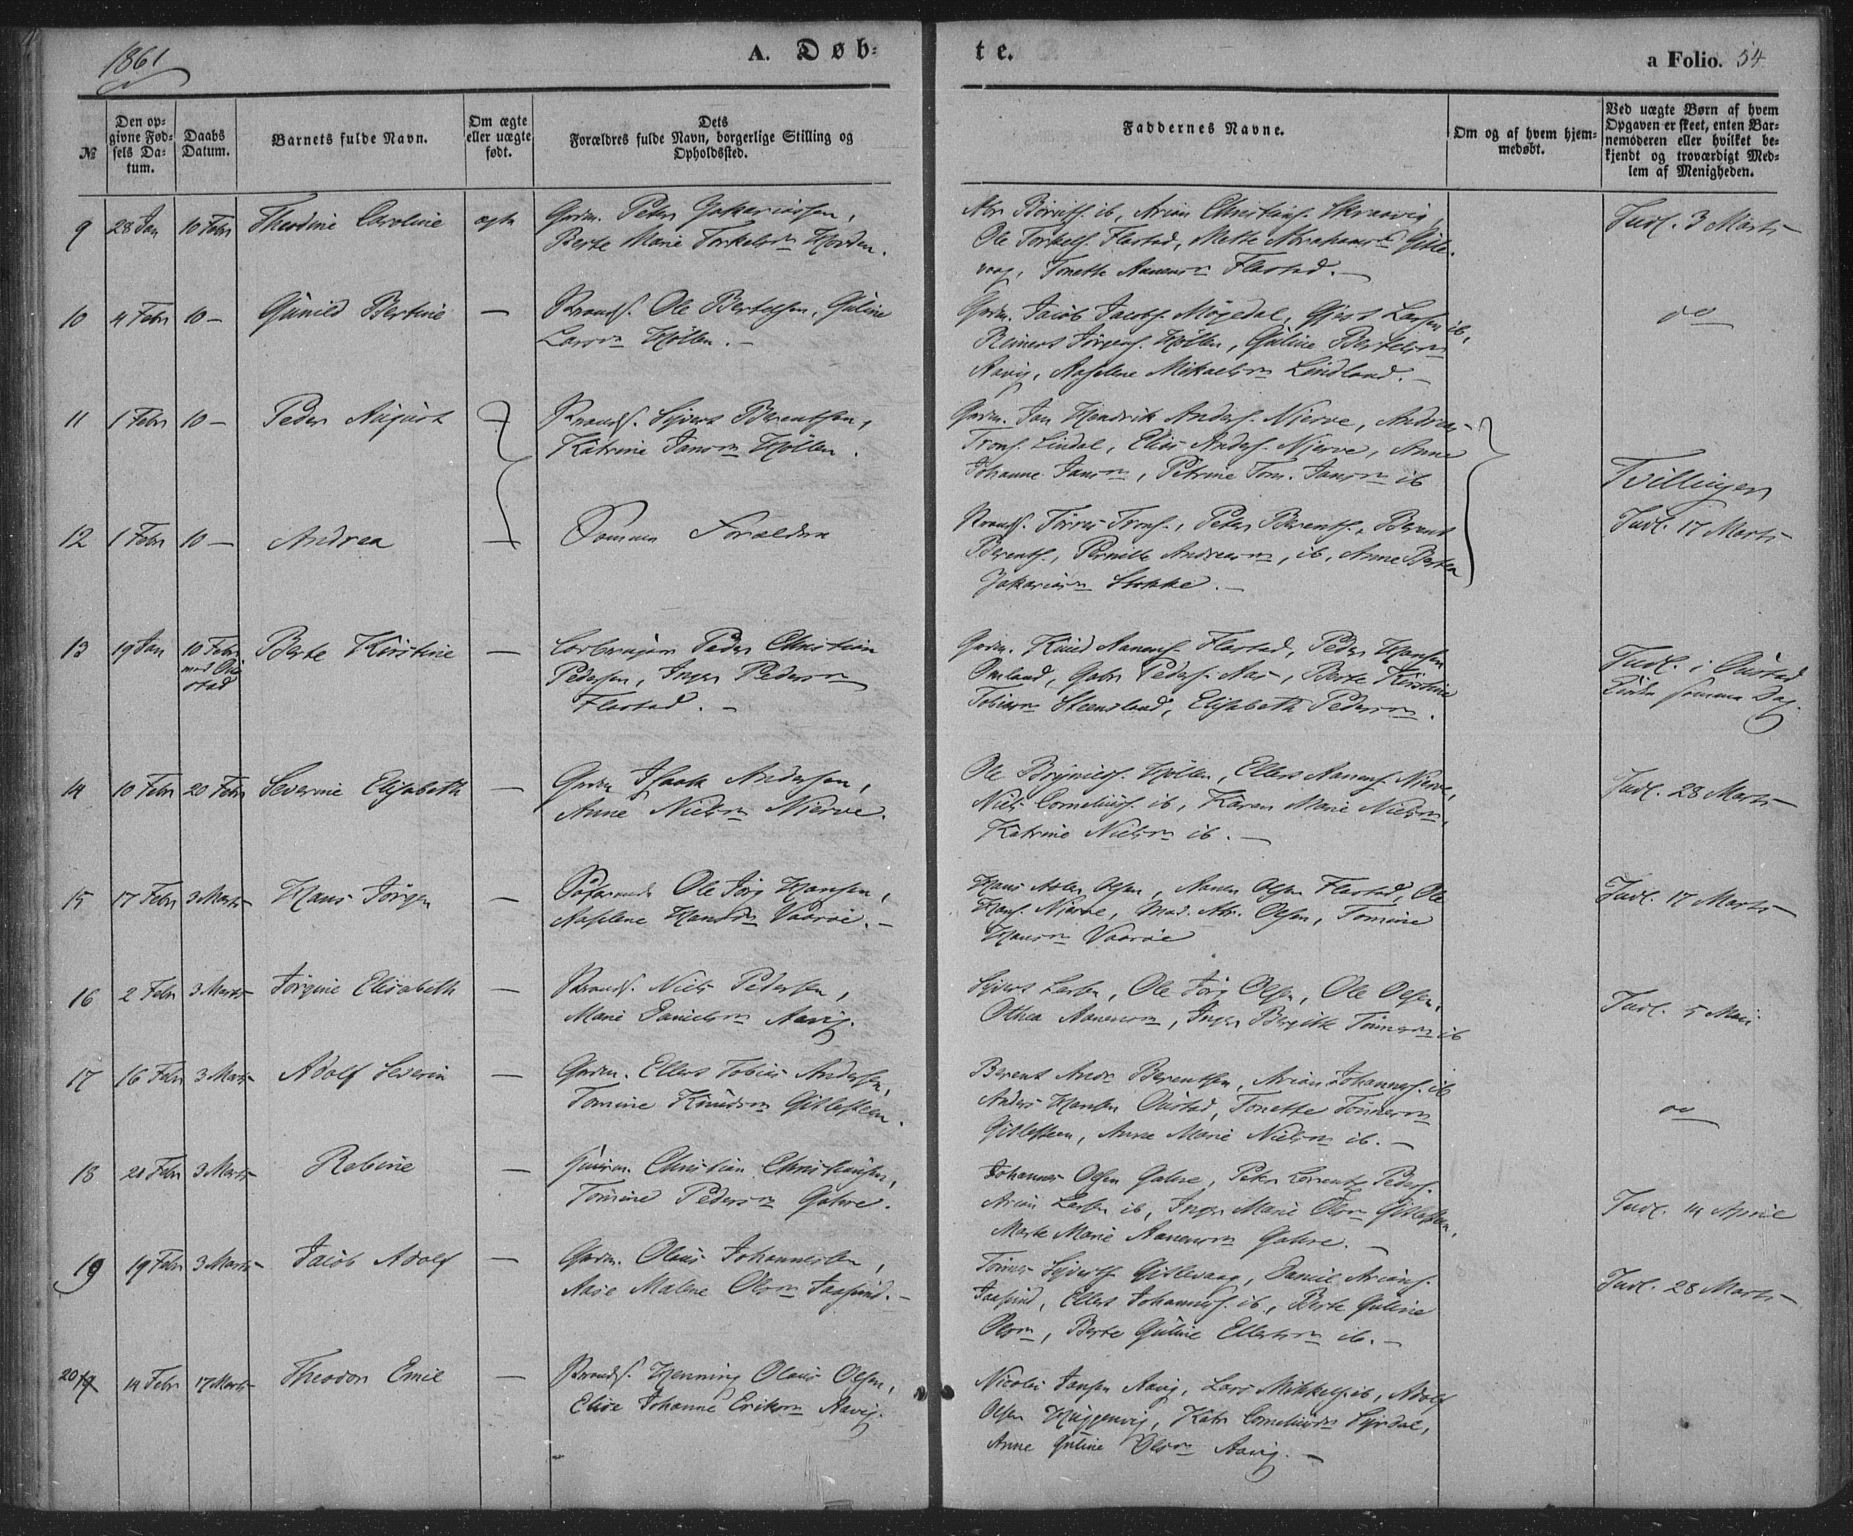 1861
A. Døb-
te.
a Folio. 54
№
Den op-
givne Fød-
sels Da-
tum.
Daabs
Datum.
Barnets fulde Navn.
Om ægte
eller uægte
født.
Dets
Forældres fulde Navn, borgerlige Stilling og
Opholdssted.
Faddernes Navne.
Om og af hvem hjem-
medøbt.
Ved uægte Børn af hvem
Opgaven er skeet, enten Bar-
nemoderen eller hvilket be-
kjendt og troværdigt Med-
lem af Menigheden.
9 28 Jan 10 Febr Theodine Caroline ægte Gaardm. Peter Zakariassen,
Berte Marie Torkelsdn
ib, Arian Christians.
Ole Torkels. Flastad, Mette Abrahamsdn Gitle-
vaag, Tonette Aanensdn Flastad. —
Indl. 3 Marts
10 4 Febr 10 — Gunild Bertine — Strands. Ole Bertelsen, Guline
Larsdn Hollen. —
Gaardm. Jacob Jacobs. Møgedal, Gjert Larsen ib,
Reinert Jørgens. Hollen, Guline Bertelsdn
Aavig, Aaselene Mikaelsdn Lindland. —
do
11 1 Febr 10 — Peder August Strands. Sivert Berentsen,
Katrine Jansdn Hollen.
Gaardm. Jan Hendrik Anders. Njerve, Andreas
Trons. Lindal, Elias Anders. Njerve, Anne
Johanne Jansdn, Petrine Tom. Jansdn ib
Tvillinger
12 1 Febr 10 — Andrea — Samme Forældre
Strands. Tørres Trons., Peter Berents., Berent
Berents., Pernille Andreasdn, ib, Anne Bertea
Zakariasdn Stokke. —
Indl. 17 Marts
13 19 Jan 10 Febr
med Øi-
stad
Berte Kirstine — Peder Christian
Pedersen, Inger Pedersdn
Flastad. —
Gaardm. Knud Aanens. Flastad, Peder Hansen
Omland, Gabr Peders. Naes, Berte Kirstine
Tobiasdn Steensland, Elisabeth Pedersdn.
Indl. i Øistad
Kirke samme Dag.
14 10 Febr 20 Febr Severine Elisabeth — Gaardm Isaak Andersen,
Anne Nielsdn Njerve.
Ole Brynilds. Hollen, Ellert Aanens. Njerve,
Niels Cornelius. ib, Karen Marie Nielsdn,
Katrine Nielsdn ib. —
Indl. 28 Marts
15 17 Febr 3 Marts Hans Jørgen — Søfarende Ole Jørg Hansen,
Aaselene Hansdn Vaarøe. —
Hans Olsen, Aanen Olsen Flastad, Ole
Hans. Njerve, Mad. Olsen, Tomine
Hansdn Vaarøe
Indl. 17 Marts
16 2 Febr 3 Marts Jørgine Elisabeth — Strands. Niels Pedersen,
Marie Danielsdn Aavig.
Sivert Larsen, Ole Jørg Olsen, Ole Olsen,
Othea Aanensdn, Inger Bergitte Tønnesdn ib
Indl. 5 Mai
17 16 Febr 3 Marts Adolf Severin — Gaardm. Ellert Tobias Andersen,
Tomine Knudsdn Gitlesteen.
Berent Andr Berentsen, Arian Johannes. ib
Anders Hansen Øistad, Tonette Tønnesdn
Gitlesteen, Anne Marie Nielsdn ib. —
do
18 21 Febr 3 Marts Rebine — Christian Christiansen,
Tomine Pedersdn Gahre.
Johannes Olsen Gahre, Peter Lorents Peders.
Arian Larsen ib, Inger Marie Olsdn Gitlesteen,
Marte Marie Aanensdn Gahre. —
Indl. 14 April
19 19 Febr 3 Marts Jacob Adolf — Gaardm. Olaus Johannessen,
Aase Malene Olsdn Faasund. —
Tønnes Siverts. Gitlevaag, Daniel Arians.
Faasund, Ellert Johannes. ib, Berte Guline
Olsdn, Berte Guline Ellertsdn ib. —
Indl. 28 Marts
20 19 14 Febr 17 Marts Theodor Emil — Strands. Henning Olaus Olsen,
Elise Johanne Eriksdn Aavig.
Nicolai Jansen Aavig, Lars Mikkels. ib, Adolf
Olsen Huggenvig, Katr Corneliusdn
Anne Guline Olsdn Aavig. —